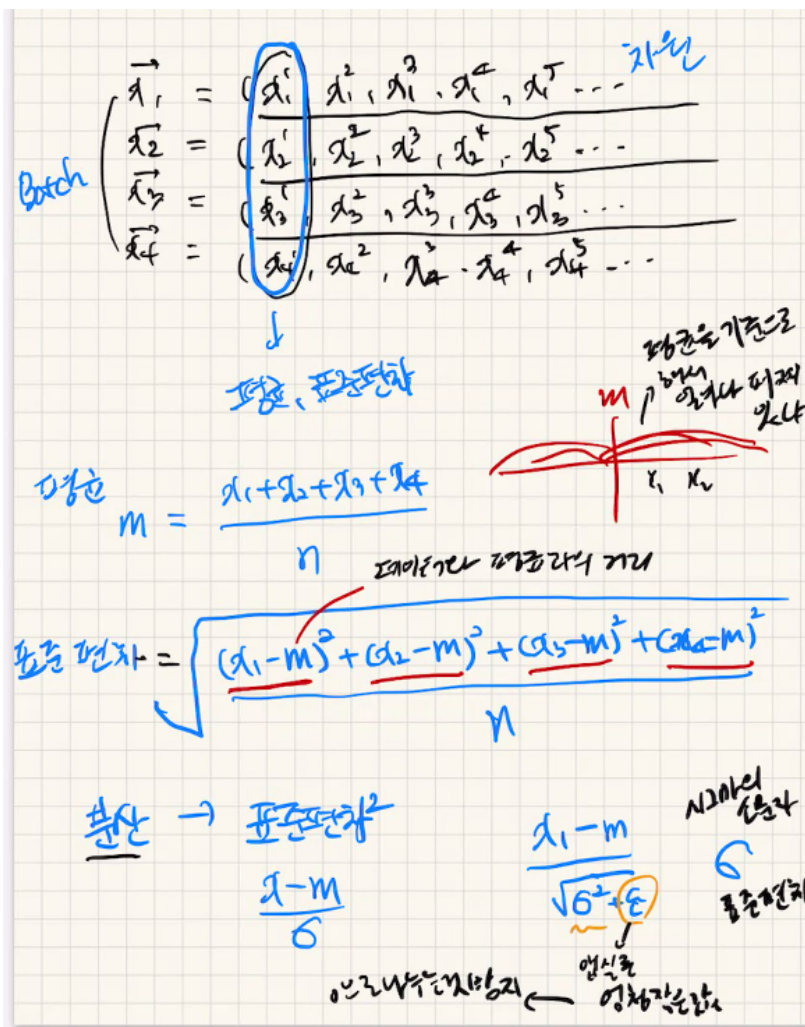 차원
x₁ = (x₁¹, x₁², x₁³, x₁⁴, x₁⁵ ...
Batch
x₂ = (x₂¹, x₂², x₂³, x₂⁴, x₂⁵ ...
x₃ = (x₃¹, x₃², x₃³, x₃⁴, x₃⁵ ...
x₄ = (x₄¹, x₄², x₄³, x₄⁴, x₄⁵ ...
↓
평균, 표준편차
평균을 기준으로
해서
얼마나 퍼져
있냐
m
x₁ x₂
평균
m = (x₁+x₂+x₃+x₄) / n
데이터와 평균과의 거리
표준 편차 = √(((x₁-m)²+(x₂-m)²+(x₃-m)²+(x₄-m)²) / n)
분산 → 표준편차²
(x-m) / σ
(x₁-m) / √(σ²+ε)
시그마의
소문자
σ
표준편차
앱실론
엄청 작은 값
0으로 나누는 것 방지 ←